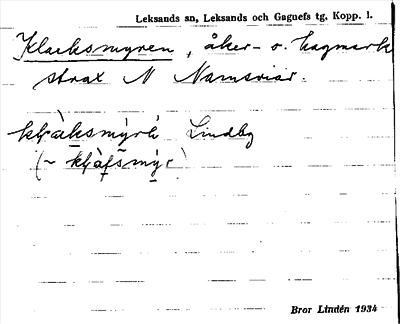 Leksands sn, Leksands och Gagnefs tg, Kopp. l.
Klacksmyren, åker- o. hagmark
strax N Namsvior.
Lindby
Bror Lindén 1934